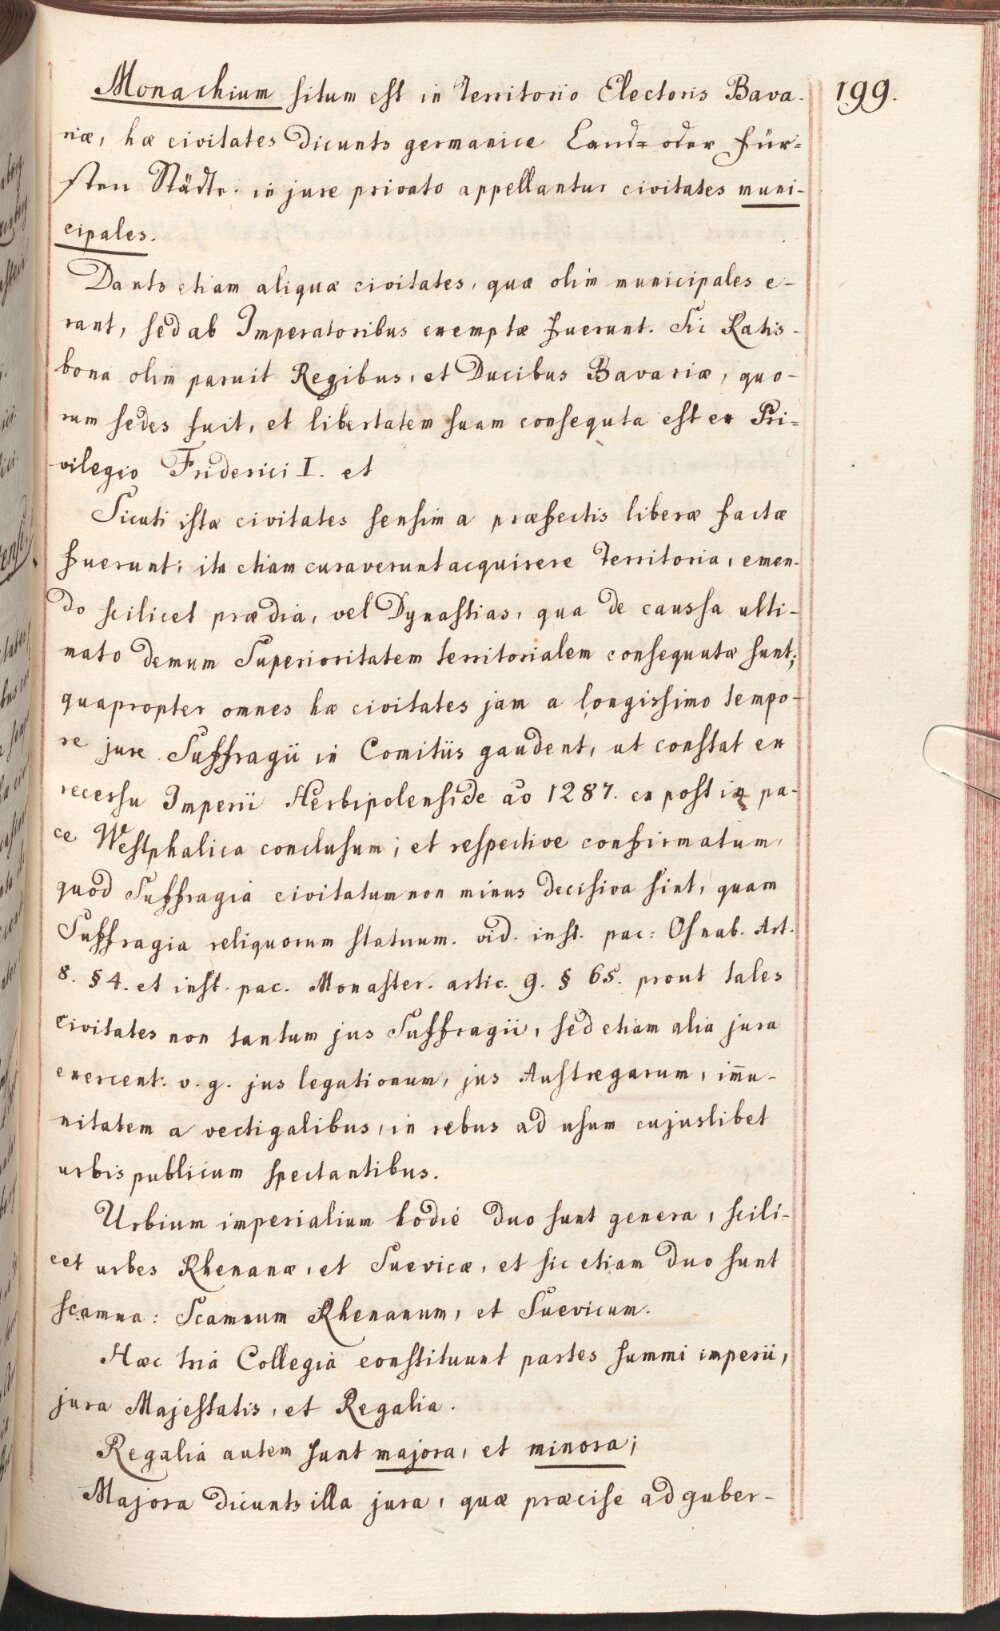 Monachium situm est in Territorio Electoris Bava-
199.
riæ, hæ civitates Dicunts germanice Land- oder Für-
sten Städte. in jure privato appellantur civitates muni-
cipales.
Dants etiam aliquæ civitates, quæ olim municipales e-
rant, sed ab Imperatoribus exemptæ fuerunt. Sic Ratis-
bona olim paruit Regibus, et Ducibus Bavariæ, quo-
rum sedes fuit, et libertatem suam consequta est ex Pri-
vilegio Friderici I. et
Sicuti istæ civitates sensim a præfectis liberæ factæ
fuerunt; ita etiam curaverunt acquirere Territoria, emen-
do scilicet prædia, vel Dynastias, qua de caussa ulti-
mato demum Superioritatem territorialem consequutæ sunt;
quapropter omnes hæ civitates jam a longissimo tempo-
re jure Suffragii in Comitiis gaudent, ut constat ex
recessu Imperii Herbipolensi de ao 1287. ex post in pa-
ce Westphalica conclusum; et respective confirmatum,
quod Suffragia civitatum non minus decisiva sint, quam
Suffragia reliquorum statuum. vid. inst. pac: Osnab. Art.
8. § 4. et inst. pac. Monaster. artic. 9. § 65. prout tales
civitates non tantum jus Suffragii, sed etiam alia jura
exercent: v. g. jus legationum, jus Austregarum, im̄u-
nitatem a vectigalibus, in rebus ad usum cujuslibet
urbis publicum spectantibus.
Urbium imperialium hodie duo sunt genera, scili-
cet urbes Rhenanæ, et Suevicæ, et sic etiam duo sunt
scamna: Scamnum Rhenanum, et Suevicum.
Hæc tria Collegia constituunt partes summi imperii,
jura Majestatis, et Regalia.
Regalia autem sunt majora, et minora;
Majora dicunts illa jura, quæ præcise ad guber-